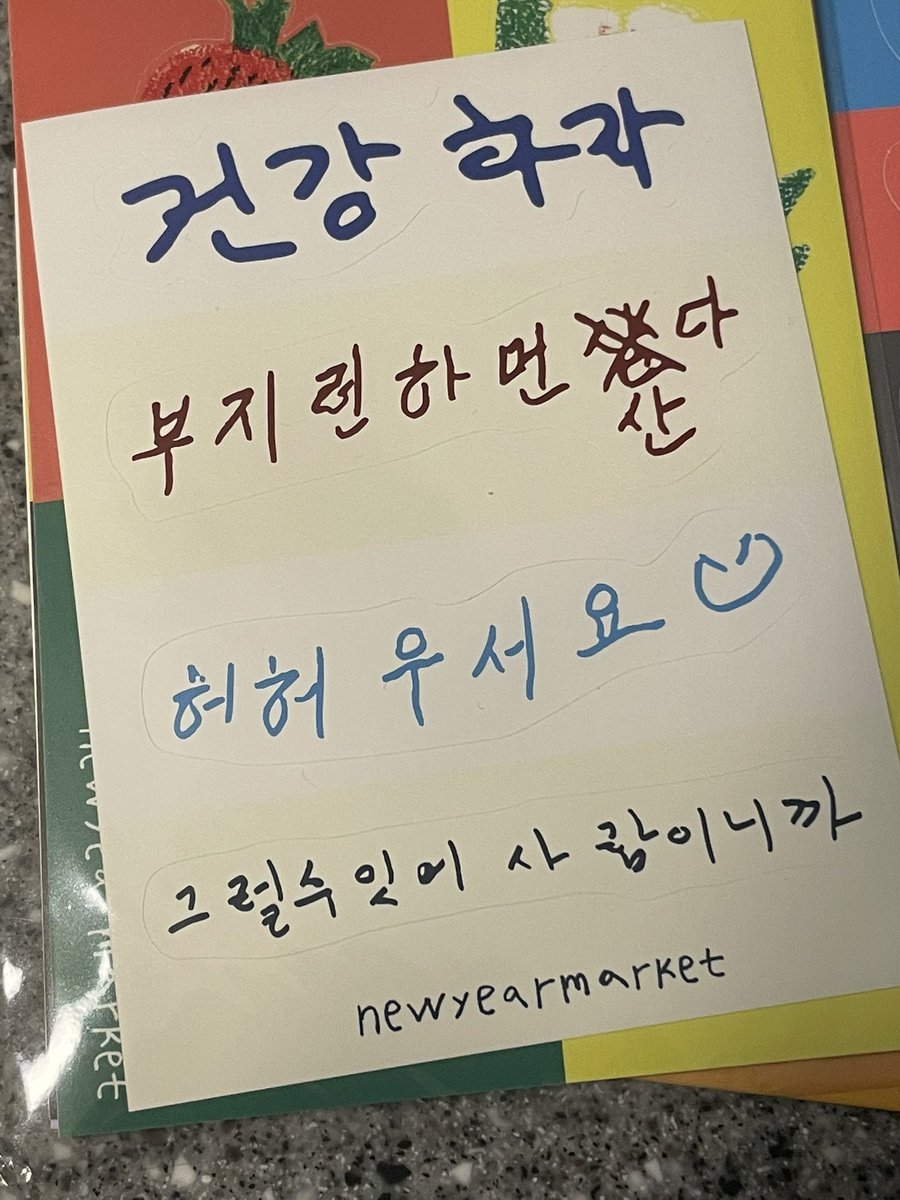 건강 하자
부지런하먼 산다
허허 우서요
그럴수잇어 사람이니까
newyearmarket